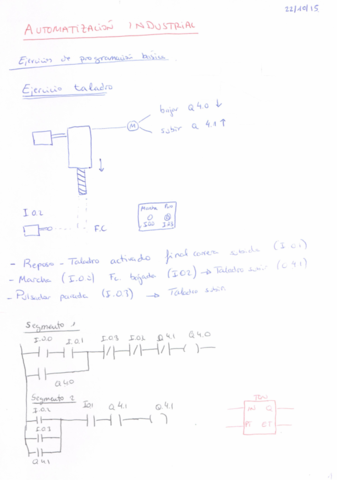 22/10/15
AUTOMATIZACIÓN INDUSTRIAL
Ejercicios de programación básica
Ejercicio taladro
bajar Q 4.0 ↓
M
subir Q 4.1 ↑
I 0.2
F.C.
Marcha Paro
I 0.0 I 0.3
- Reposo - Taladro activado final carrera (I 0.1)
- Marcha (I 0.0) Fc. bajada (I 0.2) → Taladro
- Pulsador parada (I 0.3) → Taladro
Segmento 1
I 0.0 I 0.1 I 0.3 I 0.2 Q 4.1 Q 4.0
Q 4.0
Segmento 2
I 0.2 I 0.1 Q 4.1 Q 4.1
I 0.3
Q 4.1